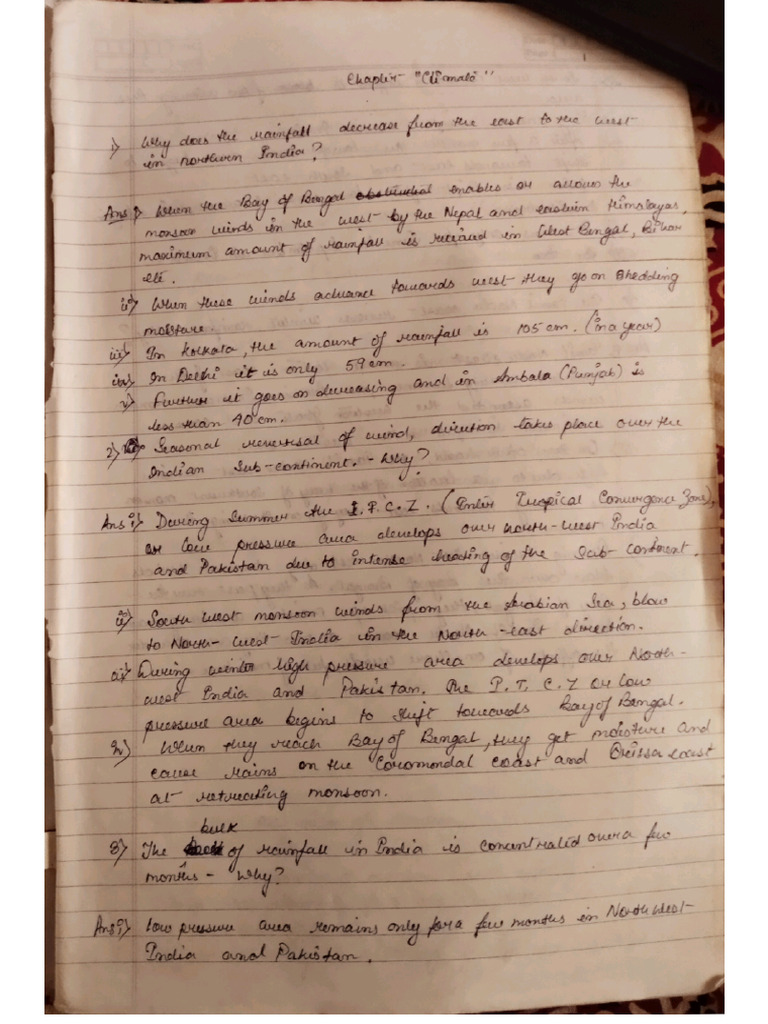 Chapter "Climate"
1) Why does the rainfall decrease from the east to the west
in northern India?
Ans i) When the Bay of Bengal enables or allows the
monsoon winds in the west by the Nepal and eastern Himalayas,
maximum amount of rainfall is in West Bengal, Bihar
etc.
ii) When these winds advance towards west they go on shedding
moisture.
iii) In Kolkata, the amount of rainfall is 105 cm. (in a year)
iv) In Delhi it is only 59 cm.
v) Further it goes on decreasing and in Ambala (Punjab) is
less than 40 cm.
2) Seasonal reversal of wind, direction takes place over the
Indian sub-continent. - Why?
Ans i) During Summer the I.T.C.Z. (Inter Tropical Convergence Zone),
or low pressure area develops over north-west India
and Pakistan due to intense heating of the sub-continent.
ii) South west monsoon winds from the Arabian Sea, blow
to North-west India in the North-east direction.
iii) During winter high pressure area develops over North-
west India and Pakistan. The I.T.C.Z or low
pressure area begins to shift towards Bay of Bengal.
iv) When they reach Bay of Bengal, they get moisture and
cause rains on the Coromondal coast and Orissa coast
at retreating monsoon.
bulk
3) The of rainfall in India is concentrated over a few
months - Why?
Ans i) low pressure area remains only for a few months in North west
India and Pakistan.